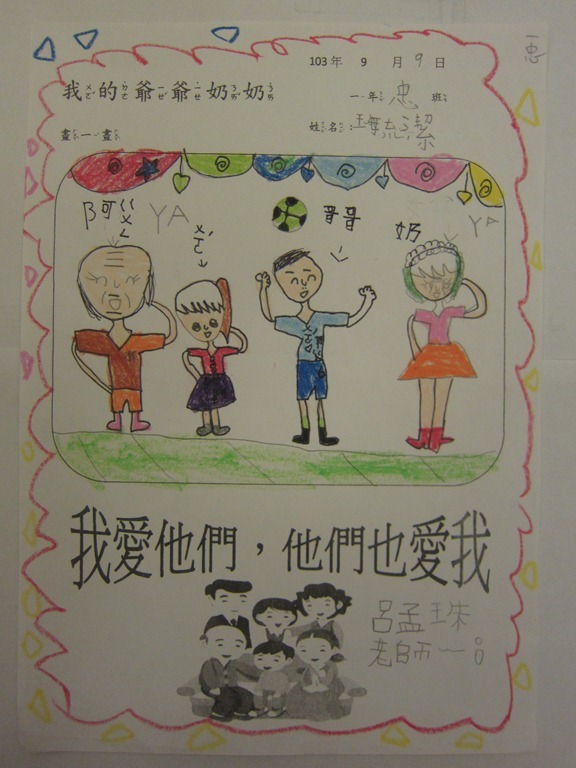 一忠
103年 9 月 9 日
我的爺爺奶奶
一年忠班
畫一畫
姓名：
阿ㄍㄨㄥ YA ㄨㄛˇ 哥哥 奶 YA
我愛他們，他們也愛我
呂孟珠
老師～